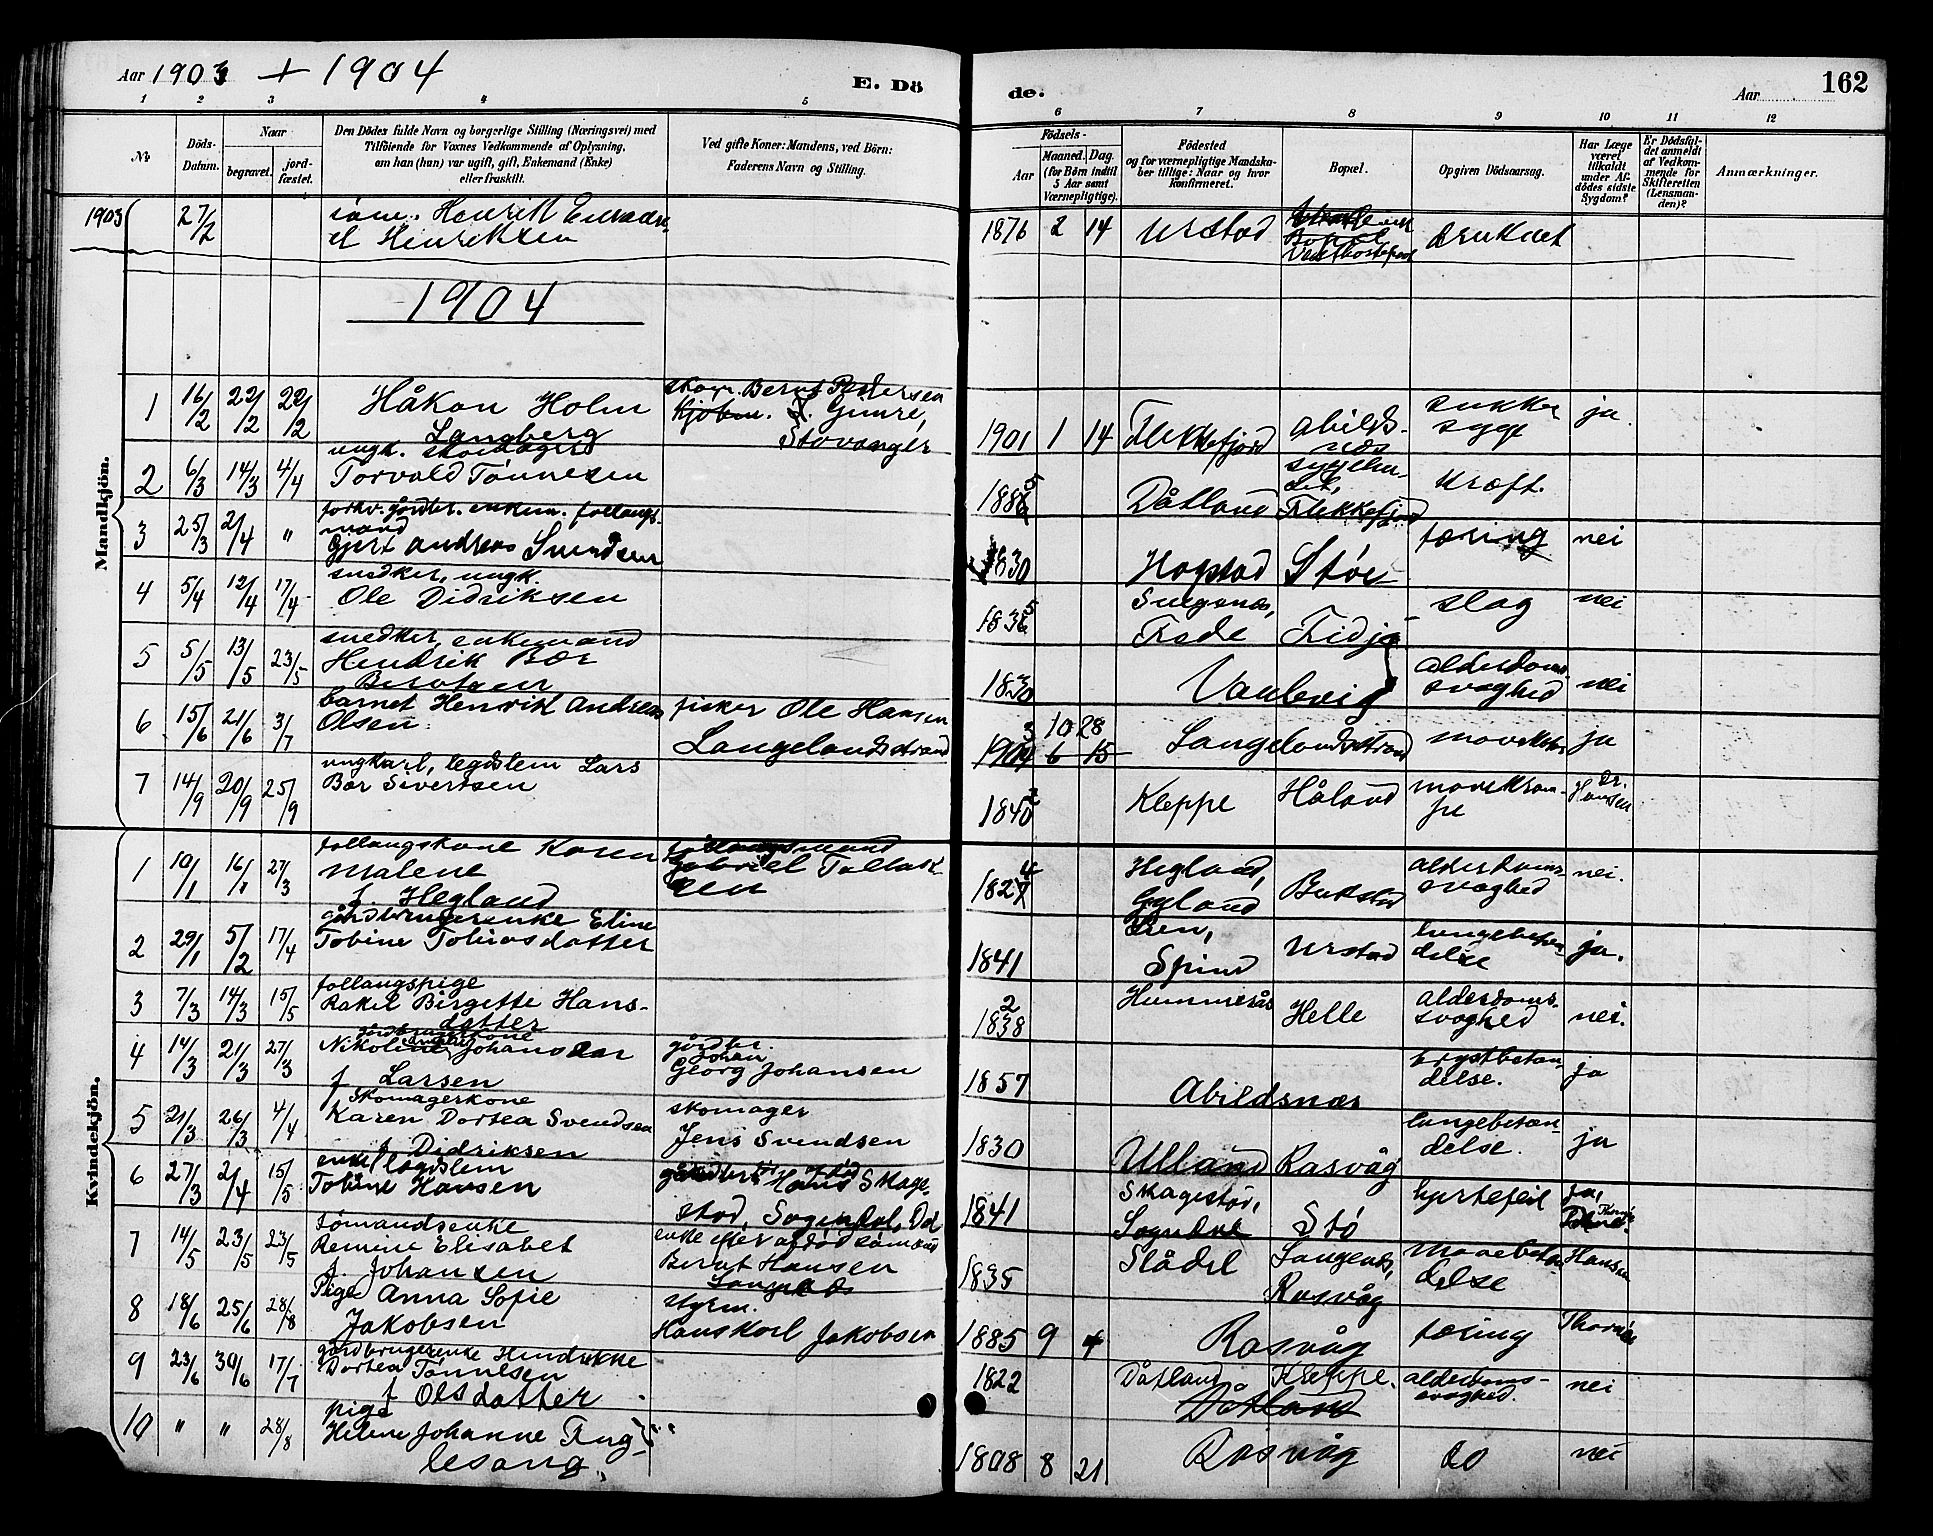 Aar 1903 + 1904
E. Dö
de.
Aar
162
1 2 3 4 5 6 7 8 9 10 11 12
No
Döds-
Datum.
Naar
begravet.
jord-
fæstet.
Den Dödes fulde Navn og borgerlige Stilling (Næringsvei) med
Tilföiende for Voxnes Vedkommende af Oplysning,
om han (hun) var ugift, gift, Enkemand (Enke)
eller fraskilt.
Ved gifte Koner: Mandens, ved Börn:
Faderens Navn og Stilling.
Födsels-
Aar
Maaned.
Dag.
(for Börn indtil
5 Aar samt
Værnepligtige).
Födested
og for værnepligtige Mandska-
ber tillige: Naar og hvor
konfirmeret.
Bopæl.
Opgiven Dödsaarsag.
Har Læge
været
tilkaldt
under Af-
dödes sidste
Sygdom?
Er Dödsfal-
det anmeldt
af Vedkom-
mende for
Skifteretten
(Lensman-
den)?
Anmærkninger.
1903 27/2 Henrik
el Henriksen
1876 2 14 Urstad druknet
1904
Mandkjön.
1 16/2 22/2 22/2 Håkon Holm
Langberg
Bernt Pedersen
Stavanger
1901 1 14 Flekkefjord Abilds-
næs
sukker
syge
ja.
2 6/3 14/3 4/4 ungk.
Torvald Tønnesen
Dåtland
Flekkefjord
kræft.
3 25/3 2/4 " forhv. gårdbr. enkem. follaugs-
mand
Gjert Andreas Svendsen
1830 Støe
tæring nei
4 5/4 12/4 17/4 snedker, ungk.
Ole Didriksen
Fidje slag nei
5 5/5 13/5 23/5 snedker enkemand
Hendrik Bær
Berntsen
alderdoms-
svaghed
nei
6 15/6 21/6 3/7 barnet Henrik Andreas
Olsen
fisker Ole Hansen
Langelandsstrand
10 28
6 15
Langelandsstrand
ja
7 14/9 20/9 25/9 ungkarl, legdslem Lars
Bær Sivertsen
Kleppe Håland mavekram-
pe
Dr.
Hansen
Kvindekjön.
1 10/1 16/1 27/3 follaugskone Karen
Malene
f. Hegland
Gabriel Tollak
sen
Hegland,
Gyland
alderdoms-
svaghed
nei.
2 29/1 5/2 17/4 gårdbrugerenke Eline
Tobine Tobiasdatter
1841 Spind Urstad lungebetæn-
delse
ja.
3 7/3 14/3 15/5 follaugspige
Rakel Birgitte Hans-
datter
Helle alderdoms-
svaghed
nei.
4 14/3 21/3 27/3 gårdbrugerkone
f. Larsen
gårdbr.
Johan
Georg Johansen
1857 Abildsnæs brystbetæn-
delse.
ja
5 21/3 26/3 4/4 skomagerkone
Karen Dortea Svendsen
f. Didriksen
skomager
Jens Svendsen
1830 Ulland Rasvåg lungebetæn-
delse.
ja
6 27/3 2/4 15/5 enke legdslem
Tobine Hansen
Hans Skage-
stad, Sogndal, Dal
1841 Skagestad,
Sogndal Stø hjertefeil ja,
7 14/5 23/5 23/5 sømandsenke
Remine Elisabet
f. Johansen
enke efter afdød sømand
Bernt Hansen
1835 Slådal
Rasvåg
mavebetæn-
delse
Hansen
8 18/6 25/6 28/8 Pige Anna Sofie
Jakobsen
styrm.
Hans Karl Jakobsen
1885 9 4 Rasvåg tæring
9 23/6 30/6 17/7 gårdbrugerenke Hendrikke
Dortea Tønnesen
f. Olsdatter
1822 Dåtland Kleppe. alderdoms-
svaghed.
nei
Dåtland
10 " " 28/8 pige
Helene Johanne Fug-
lesang,
1808 8 21 Rasvåg do nei